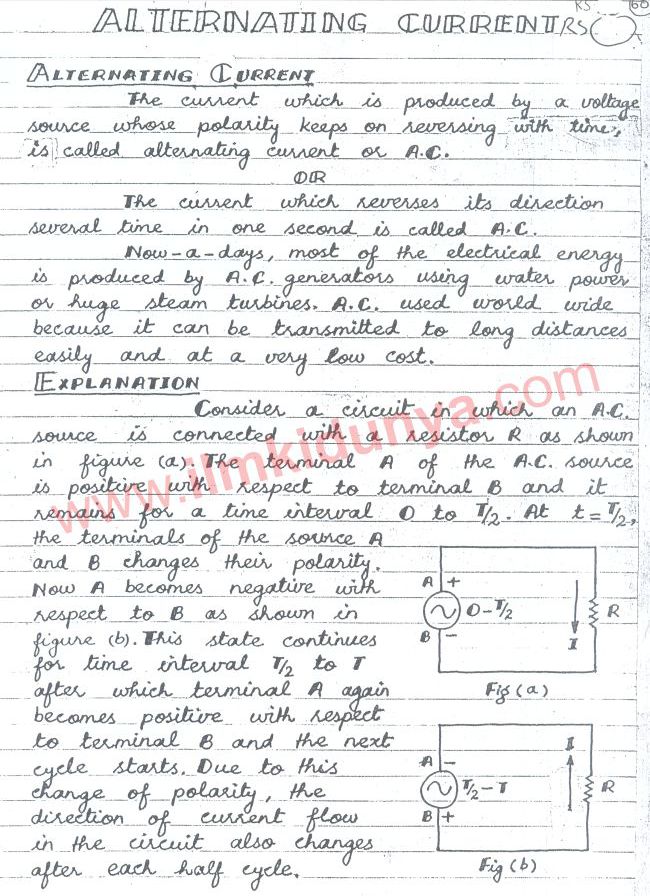 RS 160
ALTERNATING CURRENT RS
ALTERNATING CURRENT
The current which is produced by a voltage
source whose polarity keeps on reversing with time,
is called alternating current or A.C.
OR
The current which reverses its direction
several time in one second is called A.C.
Now-a-days, most of the electrical energy
is produced by A.C. generators using water power
or huge steam turbines. A.C. used world wide
because it can be transmitted to long distances
easily and at a very low cost.
EXPLANATION
Consider a circuit in which an A.C.
source is connected with a resistor R as shown
in figure (a). The terminal A of the A.C. source
is positive with respect to terminal B and it
remains for a time interval 0 to T/2. At t = T/2,
the terminals of the source A
and B changes their polarity.
Now A becomes negative with
respect to B as shown in
figure (b). This state continues
for time interval T/2 to T
after which terminal A again
becomes positive with respect
to terminal B and the next
cycle starts. Due to this
change of polarity, the
direction of current flow
in the circuit also changes
after each half cycle.
A +
0-T/2
B -
I
R
Fig (a)
A -
T/2-T
B +
I
R
Fig (b)
www.ilmkidunya.com